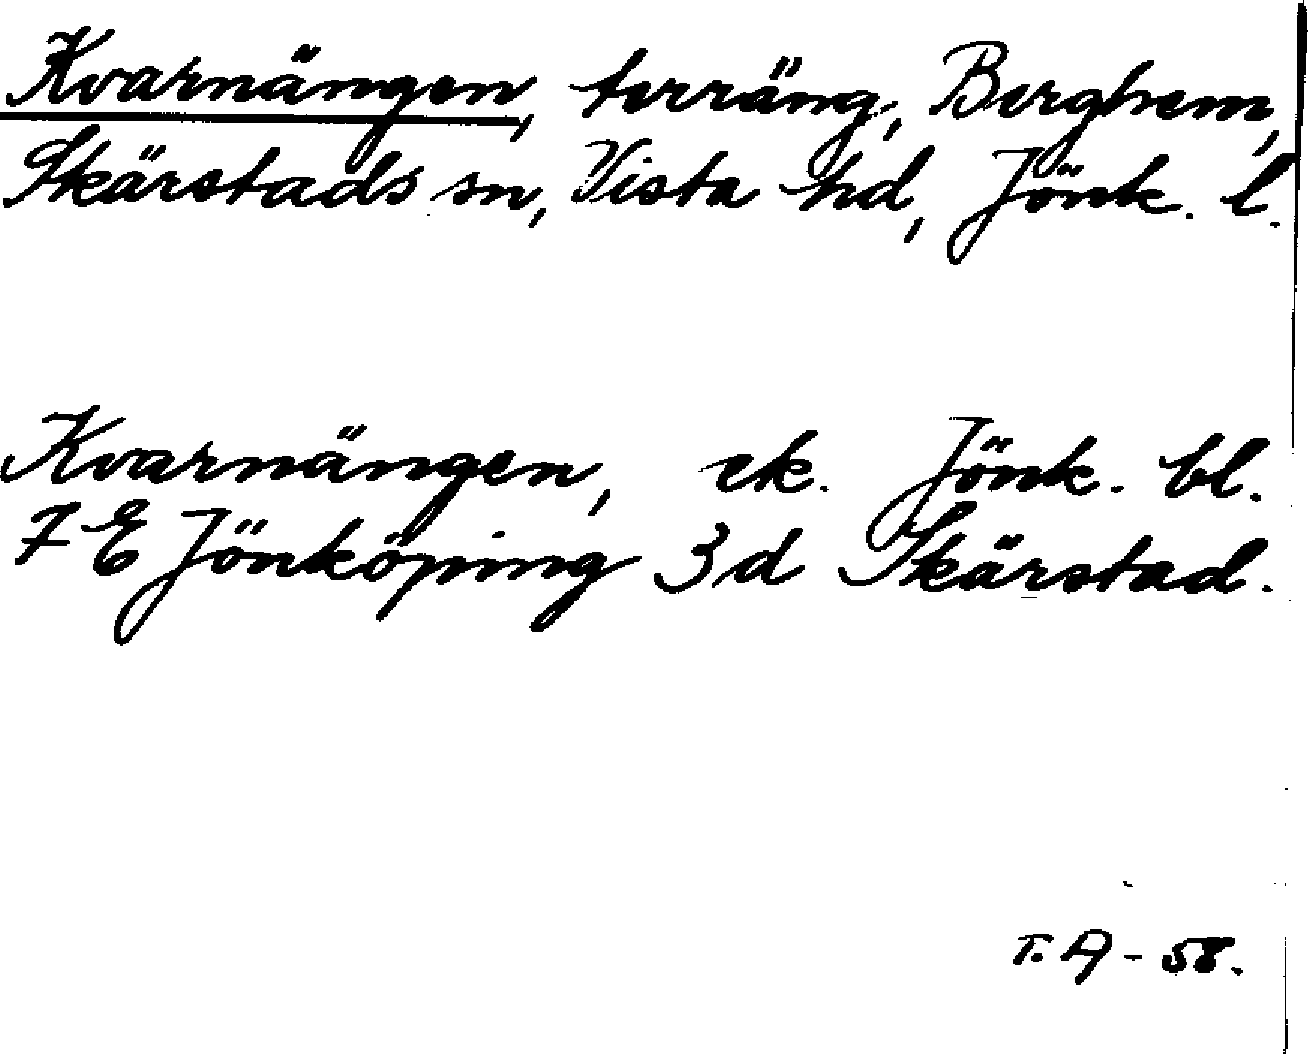 Kvarnängen, terräng, Berghem,
Skärstads sn, Vista hd, Jönk. l.
Kvarnängen, ek. Jönk. bl.
7 E Jönköping 3 d Skärstad.
T. A - 58.